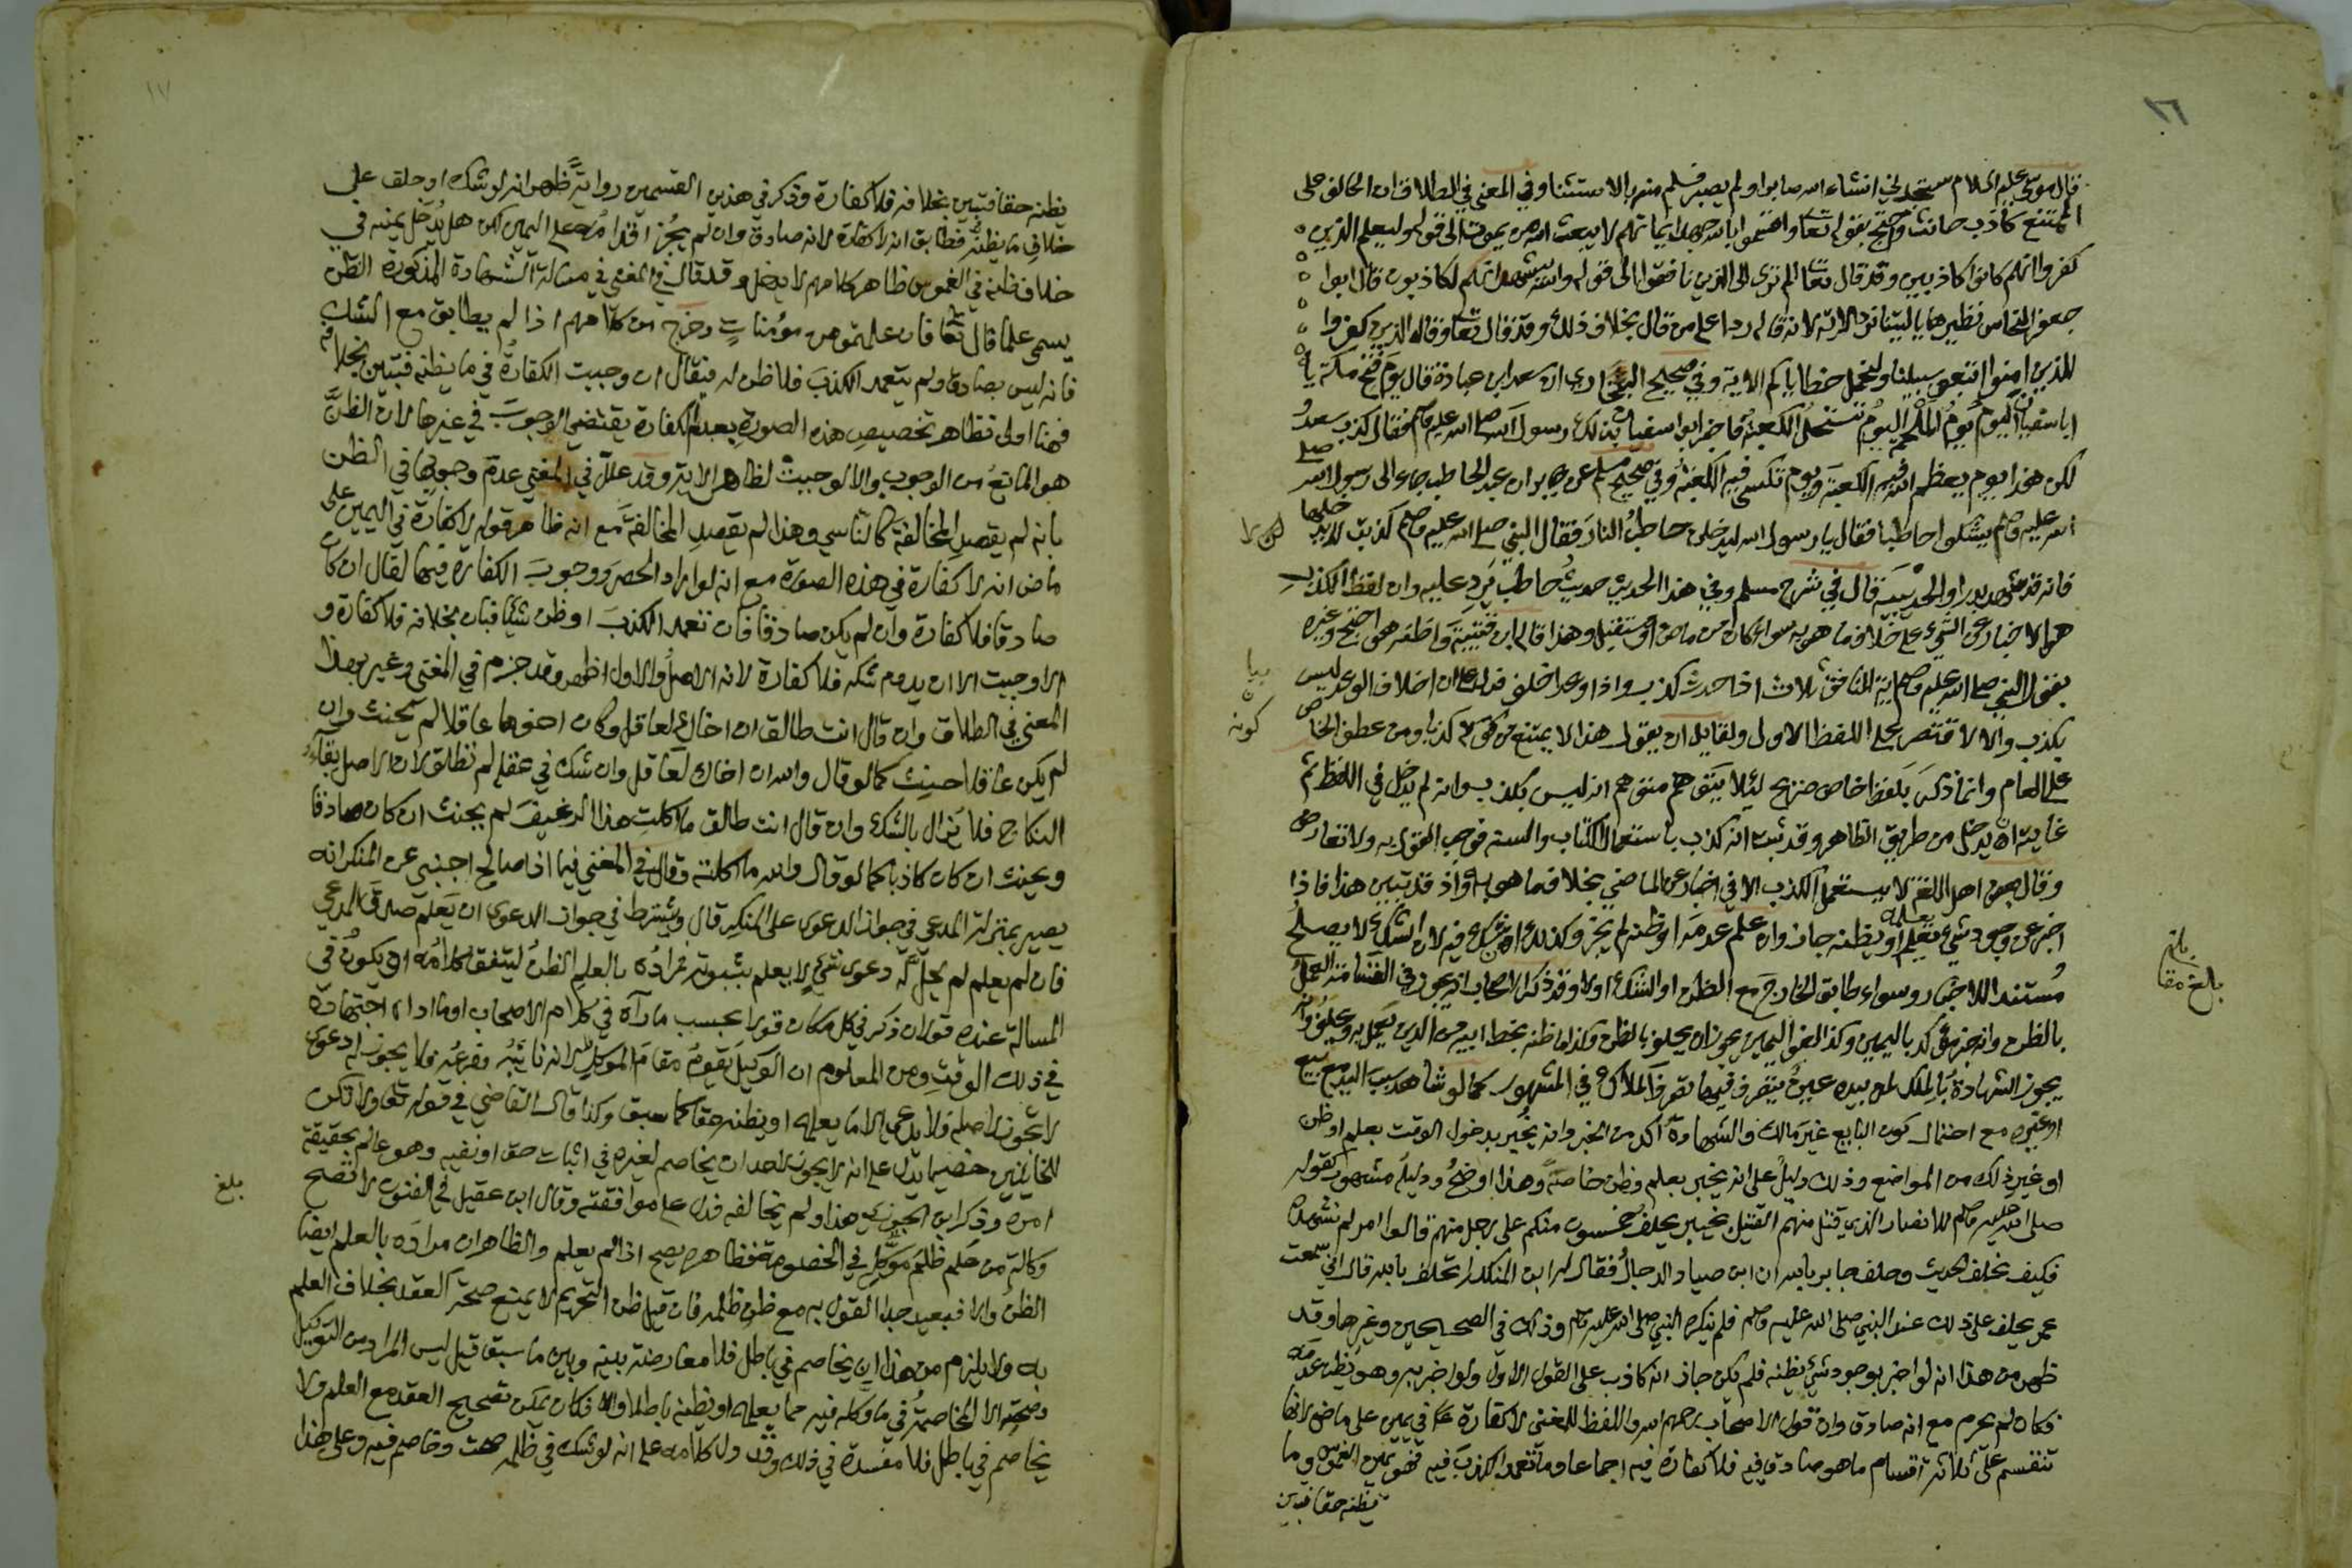 ١٦
قال موسى عليه السلام ستجدني ان شاء الله صابرا ولم يصبر فسلم منه بالاستثنا وفي المغني في الطلاق ان الحالف على
الممتنع كاذب حانث واحتج بقوله تعا واقسموا بالله جهد ايمانهم لا يبعث الله من يموت الى قوله وليعلم الذين
كفروا انهم كانوا كاذبين وقد قال تعا الم تر الى الذين نافقوا الى قوله والله يشهد انهم لكاذبون قال ابوا
جعفر النحاس نظيرها يا ليتنا نرد الاية لانه قاله ردا على من قال بخلاف ذلك وقد قال تعا وقال الذين كفروا
للذين امنوا اتبعوا سبيلنا ولنحمل خطاياكم الاية وفي صحيح البخاري ان سعد ابن عبادة قال يوم فتح مكة يا
ابا سفيان اليوم يوم الملحمه اليوم تستحل الكعبة فاخبر ابوا سفيان بذلك رسول الله صلى الله عليه وسلم فقال كذب سعد
لكن هذا يوم يعظم الله فيه الكعبة ويوم تكسى فيه الكعبة وفي صحيح مسلم عن جابر ان عبد الحاطب جاء الى رسول الله صلى
الله عليه وسلم يشكوا حاطبا فقال يا رسول الله ليدخلن حاطب النار فقال النبي صلى الله عليه وسلم كذبت لا يدخلها
فانه قد شهد بدرا والحديبية قال في شرح مسلم وفي هذا الحديث حديث حاطب يرد عليه وان لفظ الكذب
هو الاخبار عن الشيء على خلاف ما هو به سواء كان من ماض او مستقبل وهذا قاله ابن قتيبة واظنه هو احتج وغيره
بقول النبي صلى الله عليه وسلم اية المنافق ثلاث اذا حدث كذب واذا وعد اخلف فدل على ان اخلاف الوعد ليس
بكذب والا لاقتصر على اللفظ الاول ولقايل ان يقول هذا لا يمتنع من كونه كذبا ومن عطف الخاص
على العام وانما ذكر بلفظ خاص صريح ليلا يتوهم متوهم انه ليس بكذب وانه لم يدخل في اللفظ ثم
غايته ان يدخل من طريق الظاهر وقد ثبت انه كذب باستعمال الكتاب والسنه فوجب القول به ولا تعارض
وقال بعض اهل اللغة لا يستعمل الكذب الا في اخبار عن الماضي بخلاف ما هو به واذ قد تبين هذا فاذا
اخبر عن وجود شيء يعلمه او يظنه جاز وان علم عدمه او ظنه لم يجز وكذلك ان شك فيه لان الشك لا يصلح
مستندا للاخبار وسواء طابق الخارج مع الظن او الشك اولا وقد ذكر الاصحاب انه يجوز في القضا منه العمل
بالظن وانه خبر موكد باليمين وكذا لغو اليمين يجوز ان يحلف بالظن وكذا ما ظنه بخط ابيه من الدين يعمل به ويحلف وانه
يجوز الشهادة بالملك لمن بيده عين يتصرف فيها تصرف الملاك في المشهور كما لو شاهد سبب اليد مع بيع
او غيره مع احتمال كون البايع غير مالك والشهادة آكد من الخبر وانه يخبر بدخول الوقت بعلم او ظن
او غير ذلك من المواضع وذلك دليل على انه يخبر بعلم وظن خاصة وهذا اوضح ودليله مشهور بقوله
صلى الله عليه وسلم للانصار الذي قتل منهم القتيل بخيبر يحلف خمسون منكم على رجل منهم قالوا امر لم نشهده
فكيف نحلف الحديث وحلف جابر بالله ان ابن صياد الدجال فقال له ابن المنكدر اتحلف بالله قال اني سمعت
عمر يحلف على ذلك عند النبي صلى الله عليه وسلم فلم ينكره النبي صلى الله عليه وسلم وذلك في الصحيحين وغيرهما وقد
ظهر من هذا انه لو اخبر بوجود شيء يظنه فلم يكن جاز انه كاذب على القول الاول ولو اخبر به وهو يظن عدمه
فكان لم يحرم مع انه صادق وان قول الاصحاب رحمهم الله واللفظ للمغني لا كفارة في يمين على ماض لانها
تنقسم على ثلاثة اقسام ما هو صادق فيه فلا كفارة فيه اجماعا وما تعمد الكذب فيه فهو يمين الغموس وما
يظنه حقا فتبين
بيان
كونه
بلغ
بالغ مقا
١٧
يظنه حقا فتبين بخلافه فلا كفارة وذكر في هذين القسمين رواية ظهر انه لو شك او حلف على
خلاف ما يظنه فطابق انه لا كفارة لانه صادق وان لم يجز اقدامه على اليمين لكن هل يدخل يمينه في
خلاف ظنه في الغموس ظاهر كلامهم لا يدخل وقد قال في المغني في مسالة الشهادة المذكورة الظن
يسمى علما قال تعا فان علمتموهن مؤمنات وخرج من كلامهم اذا لم يطابق مع الشك
فانه ليس بصادق ولم يتعمد الكذب فلا ظن له فيقال ان وجبت الكفارة في ما يظنه فتبين بخلافه
فهنا اولى فظاهر تخصيص هذه الصورة بعدم الكفارة يقتضي الوجوب في غيرها لان الظن
هو المانع من الوجوب والا لوجبت لظاهر الاية وقد علل في المغني عدم وجوبها في الظن
بانه لم يقصد المخالفة كالناسي وهذا لم يقصد المخالفة مع انه ظاهر قوله لا كفارة في اليمين على
ماض انه لا كفارة في هذه الصورة مع انه لو اراد الحصر ووجوب الكفارة فيها لقال ان كان
صادقا فلا كفارة وان لم يكن صادقا فان تعمد الكذب او ظن شيئا فبان بخلافه فلا كفارة و
الا وجبت الا ان يدوم شكه فلا كفارة لانه الاصل والاول اظهر وقد جزم في المغني وغير بهذا
المعنى في الطلاق وان قال انت طالق ان اخاك لعاقل وكان اخوها عاقلا لم يحنث وان
لم يكن عاقلا حنث كما لو قال والله ان اخاك لعاقل وان شك في عقله لم تطلق لان الاصل بقاء
النكاح فلا يزال بالشك وان قال انت طالق ما اكلت هذا الرغيف لم يحنث ان كان صادقا
ويحنث ان كان كاذبا كما لو قال والله ما اكلته وقال في المغني فيما اذا صالح اجنبي عن المنكر انه
يصير بمنزلة المدعي في جواز الدعوى على المنكر قال ويشترط في جواز الدعوى ان يعلم صدق المدعي
فان لم يعلم لم يحل له دعوى شيء لا يعلم بثبوته فمراده بالعلم الظن ليتفق كلامه او يكون في
المسالة عنده قولان ذكر في كل مكان قولا بحسب ما رآه في كلام الاصحاب او ما اداه اجتهاده
في ذلك الوقت ومن المعلوم ان الوكيل يقوم مقام الموكل لانه نائبه وفرعه فلا يجوز له دعوى
لا تجوز لاصله فلا يدعي الا ما يعلمه او يظنه حقا كما سبق وكذا قال القاضي في قوله تعا ولا تكن
للخائنين خصيما يدل على انه لا يجوز لاحد ان يخاصم لغيره في اثبات حق او نفيه وهو عالم بحقيقة
امره وذكر ابن الجوزي هذا ولم يخالفه فدل على موافقته وقال ابن عقيل في الفنون لا تصح
وكالة من علم ظلم موكله في الخصومة فظاهره يصح اذا لم يعلم والظاهر ان مراده بالعلم ايضا
الظن والا فبعيد جدا القول به مع ظن ظلمه فان قيل ظن التحريم لا يمنع صحة العقد بخلاف العلم
به ولا يلزم من هذا ان يخاصم في باطل فلا معارضة بينه وبين ما سبق قيل ليس المراد من التوكيل
وصحته الا المخاصمة في ما وكله فيه مما يعلمه او يظنه باطلا والا فكان يمكن تصحيح العقد مع العلم ولا
يخاصم في باطل فلا مفسدة في ذلك وقد دل كلامه على انه لو شك في ظلمه صحت وخاصم فيه وعلى هذا
بلغ